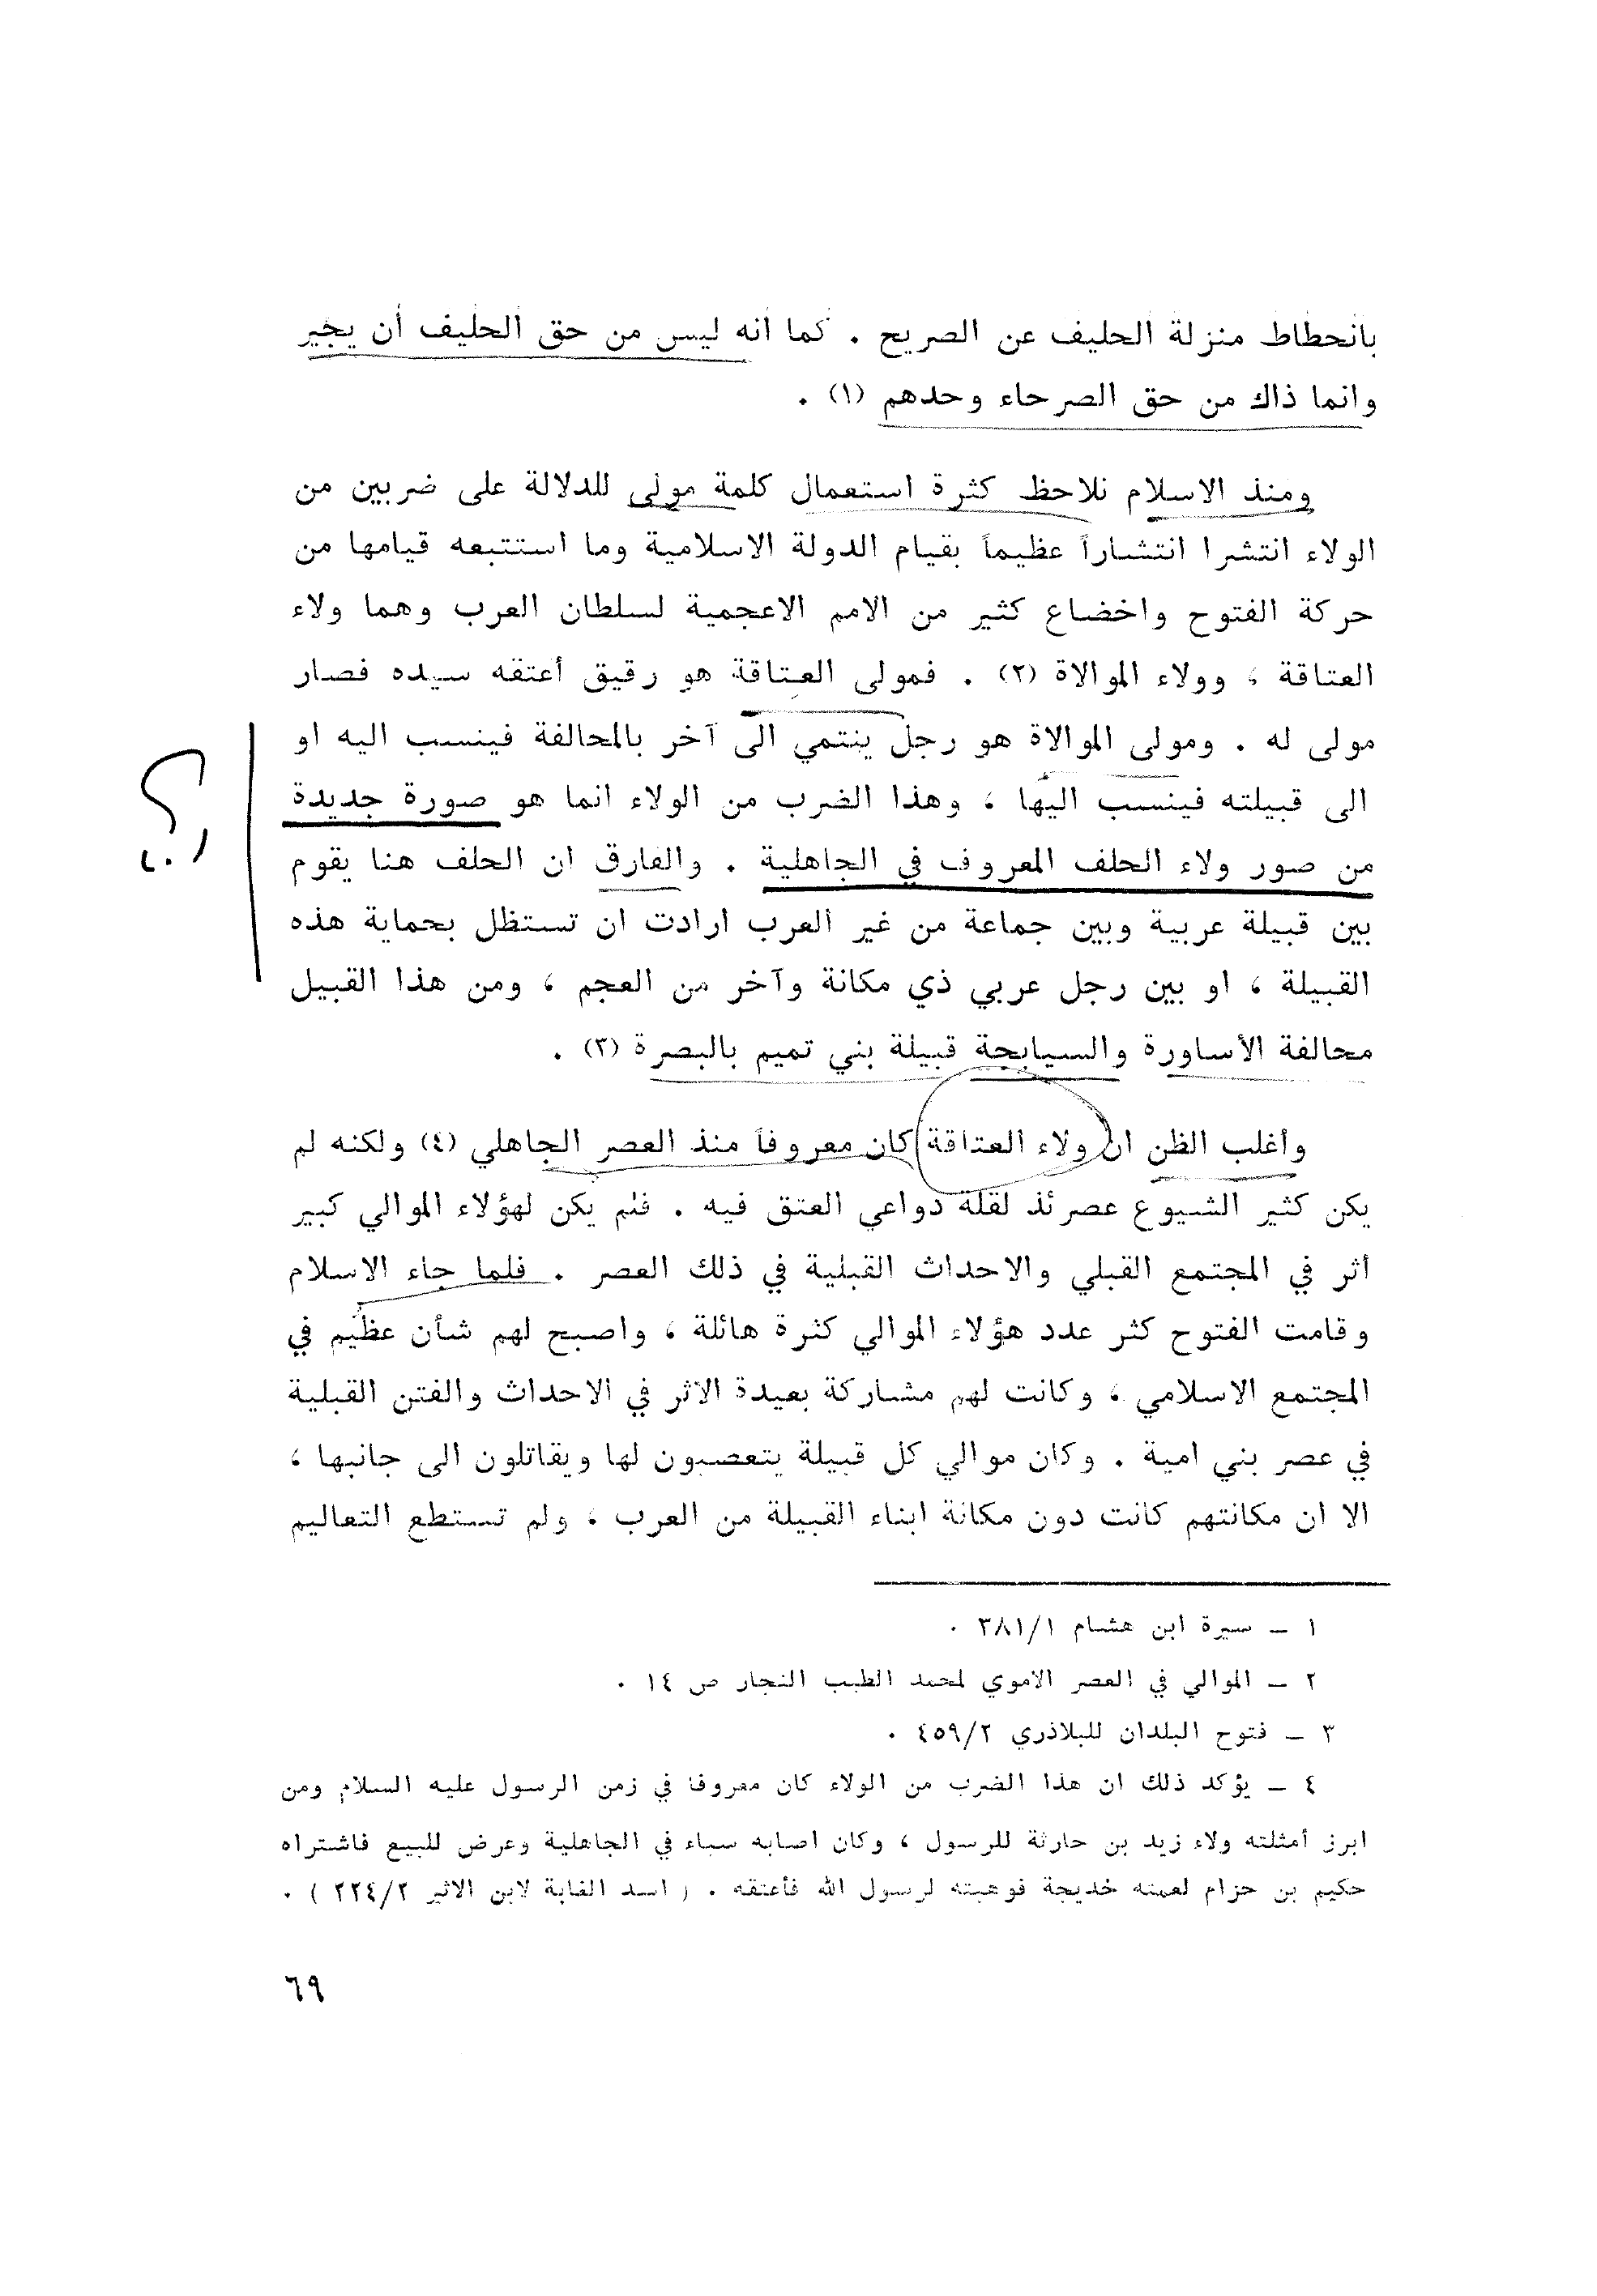 بانحطاط منزلة الحليف عن الصريح . كما أنه ليس من حق الحليف أن يجير
وانما ذاك من حق الصرحاء وحدهم (١) .
ومنذ الاسلام نلاحظ كثرة استعمال كلمة مولى للدلالة على ضربين من
الولاء انتشرا انتشاراً عظيماً بقيام الدولة الاسلامية وما استتبعه قيامها من
حركة الفتوح واخضاع كثير من الامم الاعجمية لسلطان العرب وهما ولاء
العتاقة ، وولاء الموالاة (٢) . فمولى العتاقة هو رقيق أعتقه سيده فصار
مولى له . ومولى الموالاة هو رجل ينتمي الى آخر بالمحالفة فينسب اليه او
الى قبيلته فينسب اليها ، وهذا الضرب من الولاء انما هو صورة جديدة
من صور ولاء الحلف المعروف في الجاهلية . والفارق ان الحلف هنا يقوم
بين قبيلة عربية وبين جماعة من غير العرب ارادت ان تستظل بحماية هذه
القبيلة ، او بين رجل عربي ذي مكانة وآخر من العجم ، ومن هذا القبيل
محالفة الأساورة والسيابجة قبيلة بني تميم بالبصرة (٣) .
وأغلب الظن ان ولاء العتاقة كان معروفاً منذ العصر الجاهلي (٤) ولكنه لم
يكن كثير الشيوع عصرئذ لقلة دواعي العتق فيه . فلم يكن لهؤلاء الموالي كبير
أثر في المجتمع القبلي والاحداث القبلية في ذلك العصر . فلما جاء الاسلام
وقامت الفتوح كثر عدد هؤلاء الموالي كثرة هائلة ، واصبح لهم شأن عظيم في
المجتمع الاسلامي ، وكانت لهم مشاركة بعيدة الاثر في الاحداث والفتن القبلية
في عصر بني امية . وكان موالي كل قبيلة يتعصبون لها ويقاتلون الى جانبها ،
الا ان مكانتهم كانت دون مكانة ابناء القبيلة من العرب ، ولم تستطع التعاليم
١ – سيرة ابن هشام ٣٨١/١ .
٢ – الموالي في العصر الاموي لمحمد الطيب النجار ص ١٤ .
٣ – فتوح البلدان للبلاذري ٤٥٩/٢ .
٤ – يؤكد ذلك ان هذا الضرب من الولاء كان معروفا في زمن الرسول عليه السلام ومن
ابرز أمثلته ولاء زيد بن حارثة للرسول ، وكان اصابه سباء في الجاهلية وعرض للبيع فاشتراه
حكيم بن حزام لعمته خديجة فوهبته لرسول الله فأعتقه . ( اسد الغابة لابن الاثير ٢٢٤/٢ ) .
٦٩
؟!